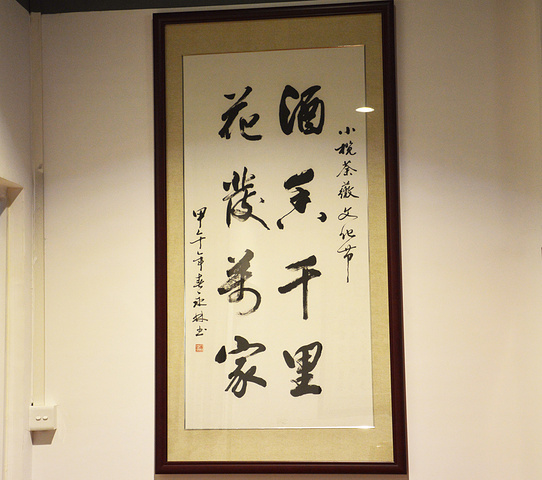 小榄荼薇文化节
酒香千里
花发万家
甲午年春永林书